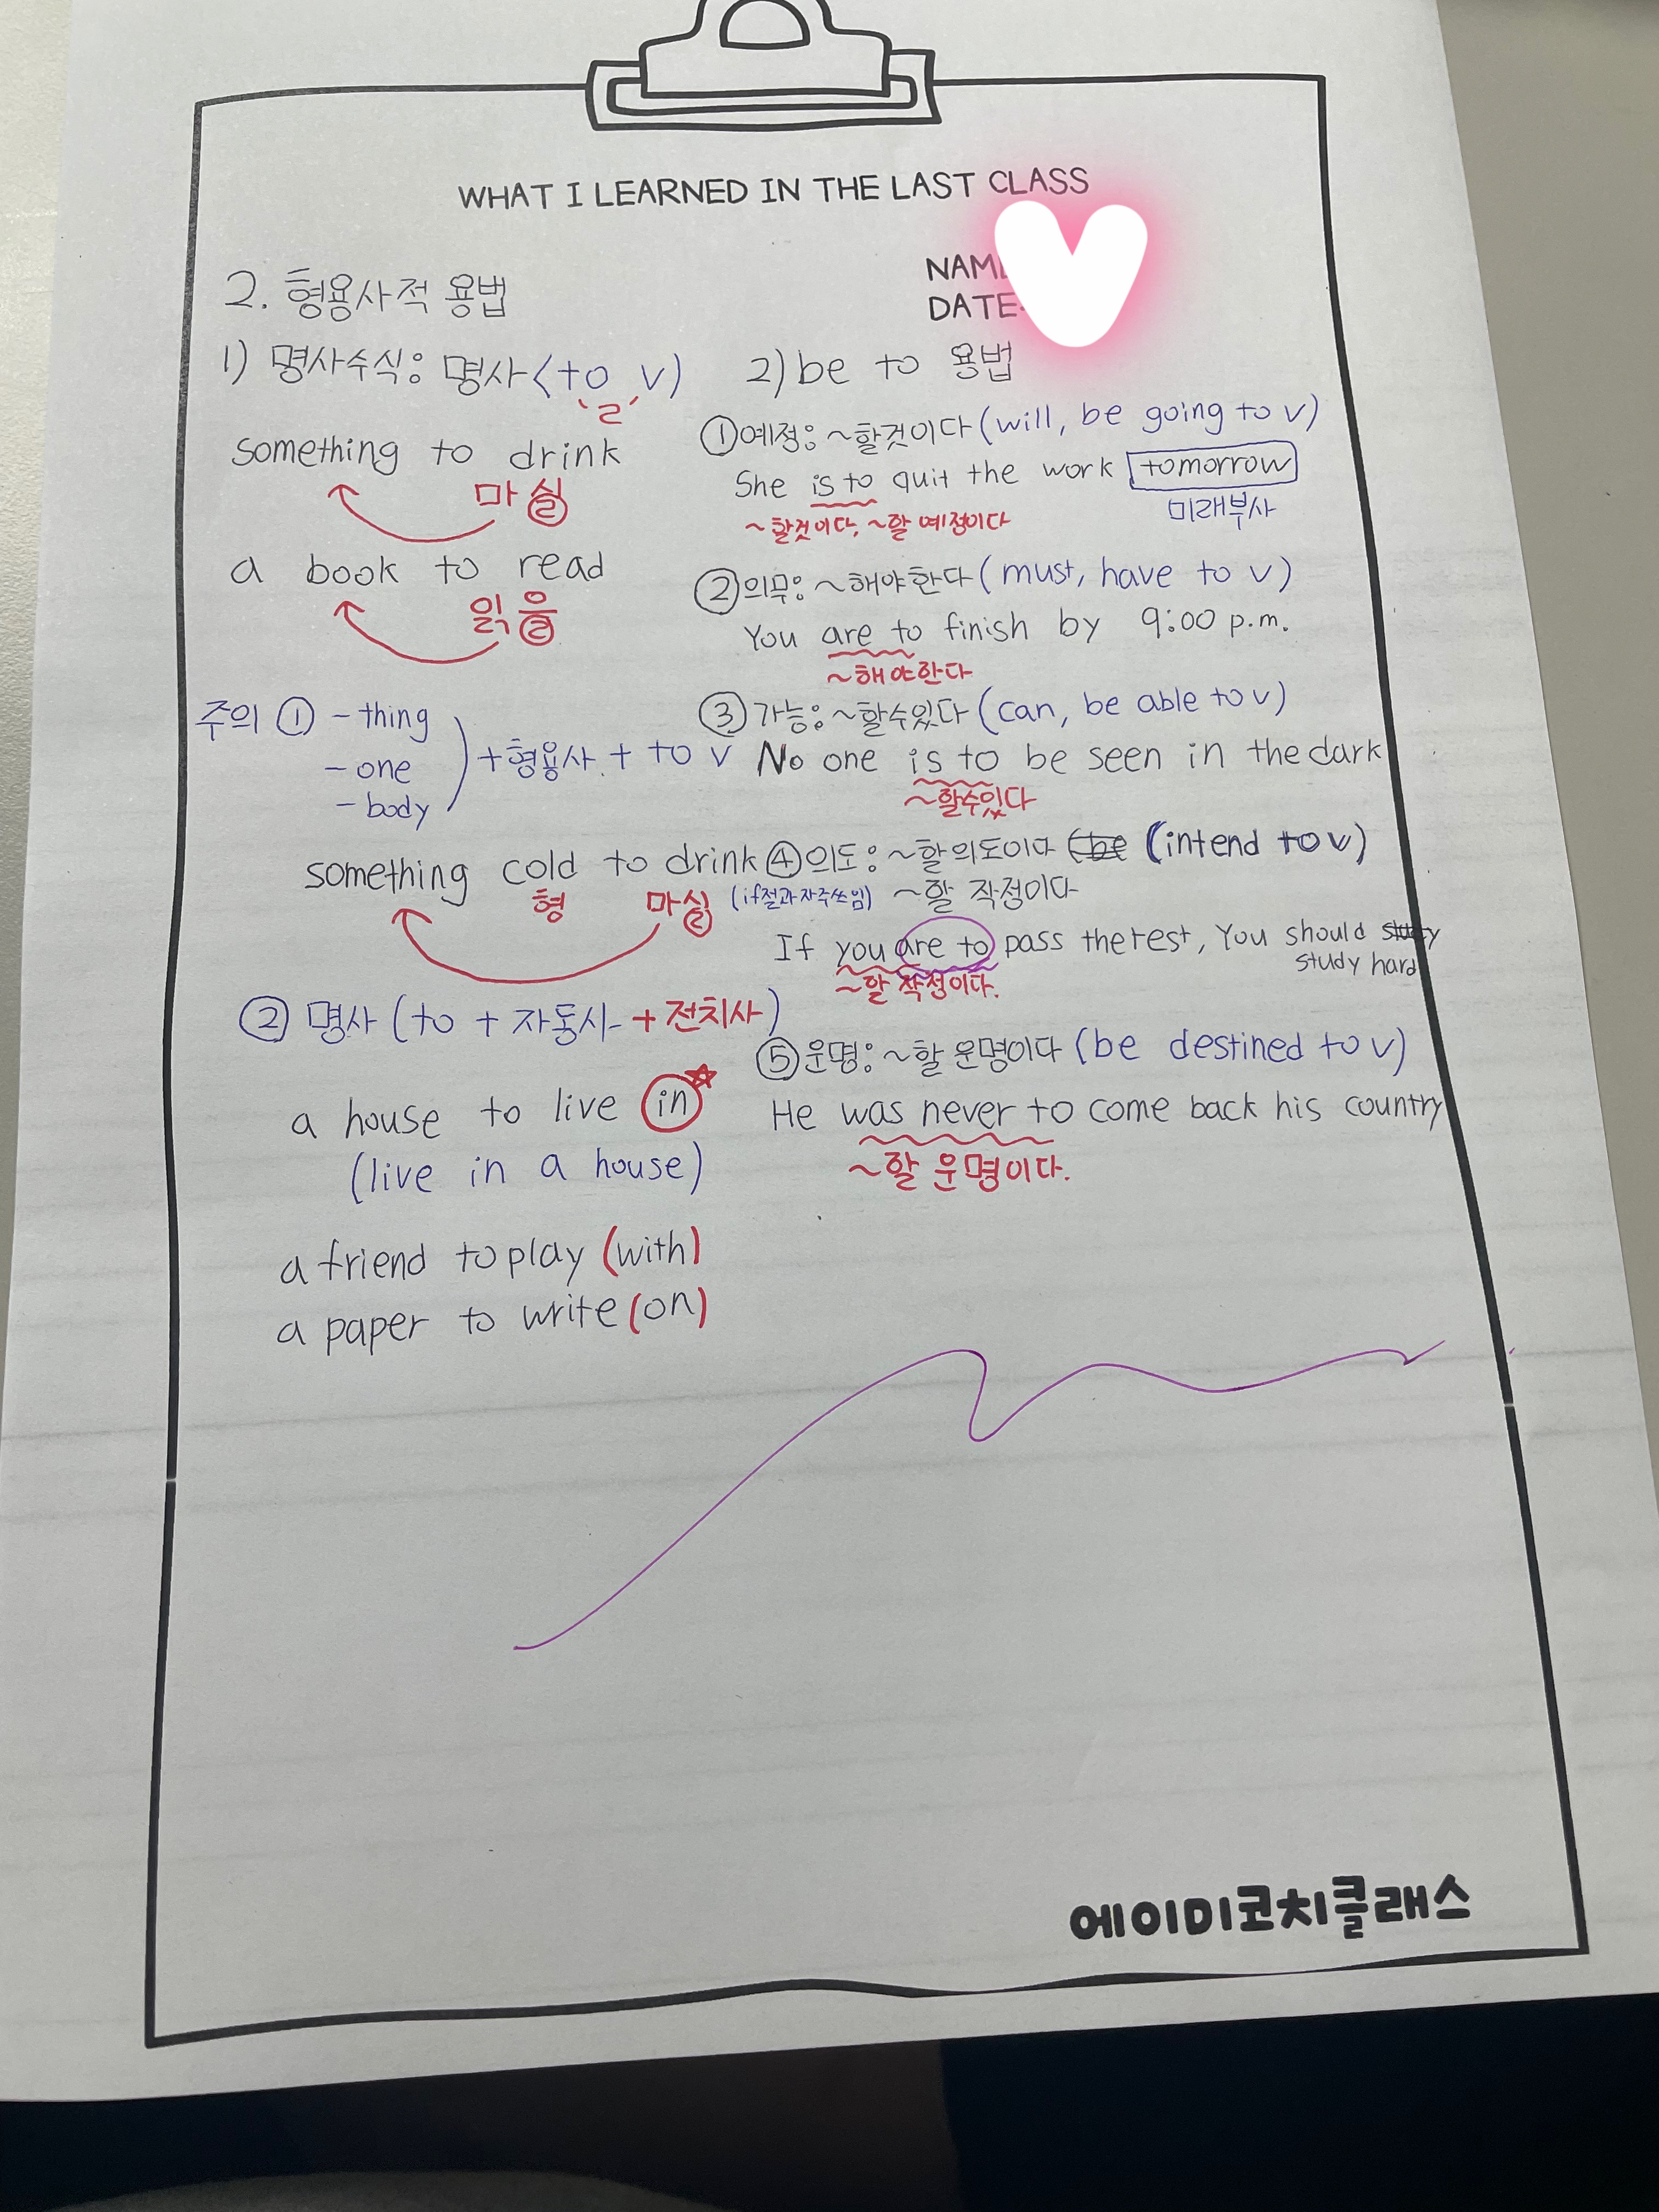 WHAT I LEARNED IN THE LAST CLASS
DATE
2. 형용사적 용법
1) 명사수식: 명사<to v)
ㄹ
something to drink
마실
a book to read
읽을
주의 ① -thing
-one
-body
+형용사 + to v
something cold to drink
형 마실
② 명사 (to + 자동사 + 전치사)
a house to live in
(live in a house)
a friend to play (with)
a paper to write (on)
2) be to 용법
① 예정: ~할것이다 (will, be going to v)
She is to quit the work tomorrow
~할것이다, ~할 예정이다 미래부사
② 의무: ~해야한다 (must, have to v)
You are to finish by 9:00 p.m.
~해야한다
③ 가능: ~할수있다 (can, be able to v)
No one is to be seen in the dark
~할수있다
④ 의도: ~할 의도이다 (intend to v)
(if절과 자주쓰임) ~할 작정이다
If you are to pass the test, You should study
study hard
~할 작정이다.
⑤ 운명: ~할 운명이다 (be destined to v)
He was never to come back his country
~할 운명이다.
에이미코치클래스